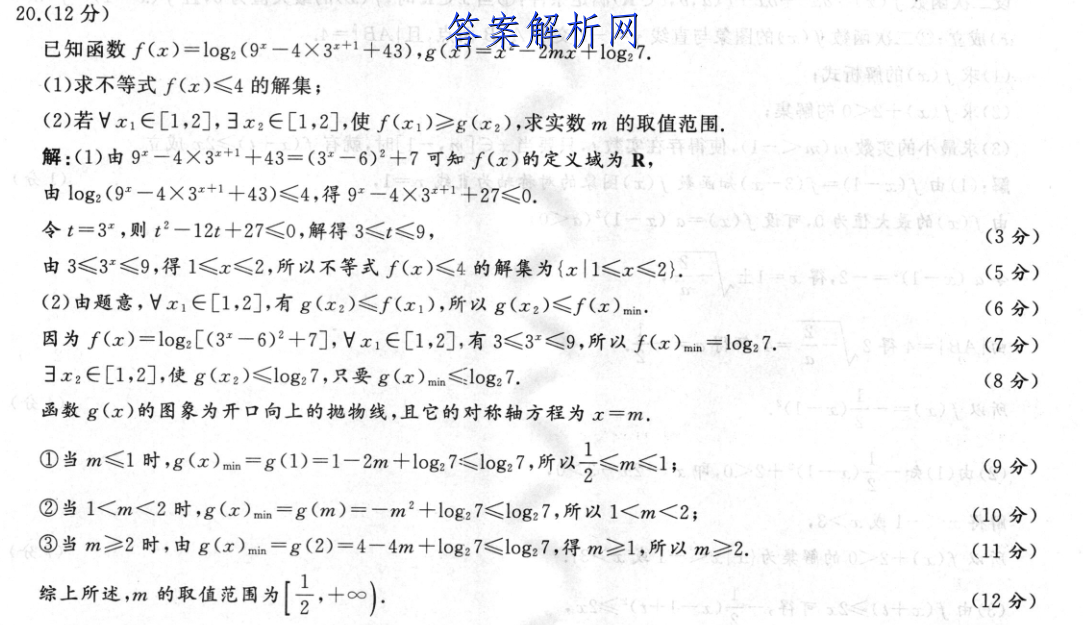 20.(12 分)
答案解析网
已知函数 f(x)=log₂(9ˣ-4×3ˣ⁺¹+43),g(x)=x²-2mx+log₂7.
(1)求不等式 f(x)≤4 的解集;
(2)若∀x₁∈[1,2],∃x₂∈[1,2],使 f(x₁)≥g(x₂),求实数 m 的取值范围.
解:(1)由 9ˣ-4×3ˣ⁺¹+43=(3ˣ-6)²+7 可知 f(x)的定义域为 R,
由 log₂(9ˣ-4×3ˣ⁺¹+43)≤4,得 9ˣ-4×3ˣ⁺¹+27≤0.
令 t=3ˣ,则 t²-12t+27≤0,解得 3≤t≤9, (3 分)
由 3≤3ˣ≤9,得 1≤x≤2,所以不等式 f(x)≤4 的解集为{x|1≤x≤2}. (5 分)
(2)由题意,∀x₁∈[1,2],有 g(x₂)≤f(x₁),所以 g(x₂)≤f(x)min. (6 分)
因为 f(x)=log₂[(3ˣ-6)²+7],∀x₁∈[1,2],有 3≤3ˣ≤9,所以 f(x)min=log₂7. (7 分)
∃x₂∈[1,2],使 g(x₂)≤log₂7,只要 g(x)min≤log₂7. (8 分)
函数 g(x)的图象为开口向上的抛物线,且它的对称轴方程为 x=m.
①当 m≤1 时,g(x)min=g(1)=1-2m+log₂7≤log₂7,所以 1/2≤m≤1; (9 分)
②当 1<m<2 时,g(x)min=g(m)=-m²+log₂7≤log₂7,所以 1<m<2; (10 分)
③当 m≥2 时,由 g(x)min=g(2)=4-4m+log₂7≤log₂7,得 m≥1,所以 m≥2. (11 分)
综上所述,m 的取值范围为[1/2,+∞). (12 分)